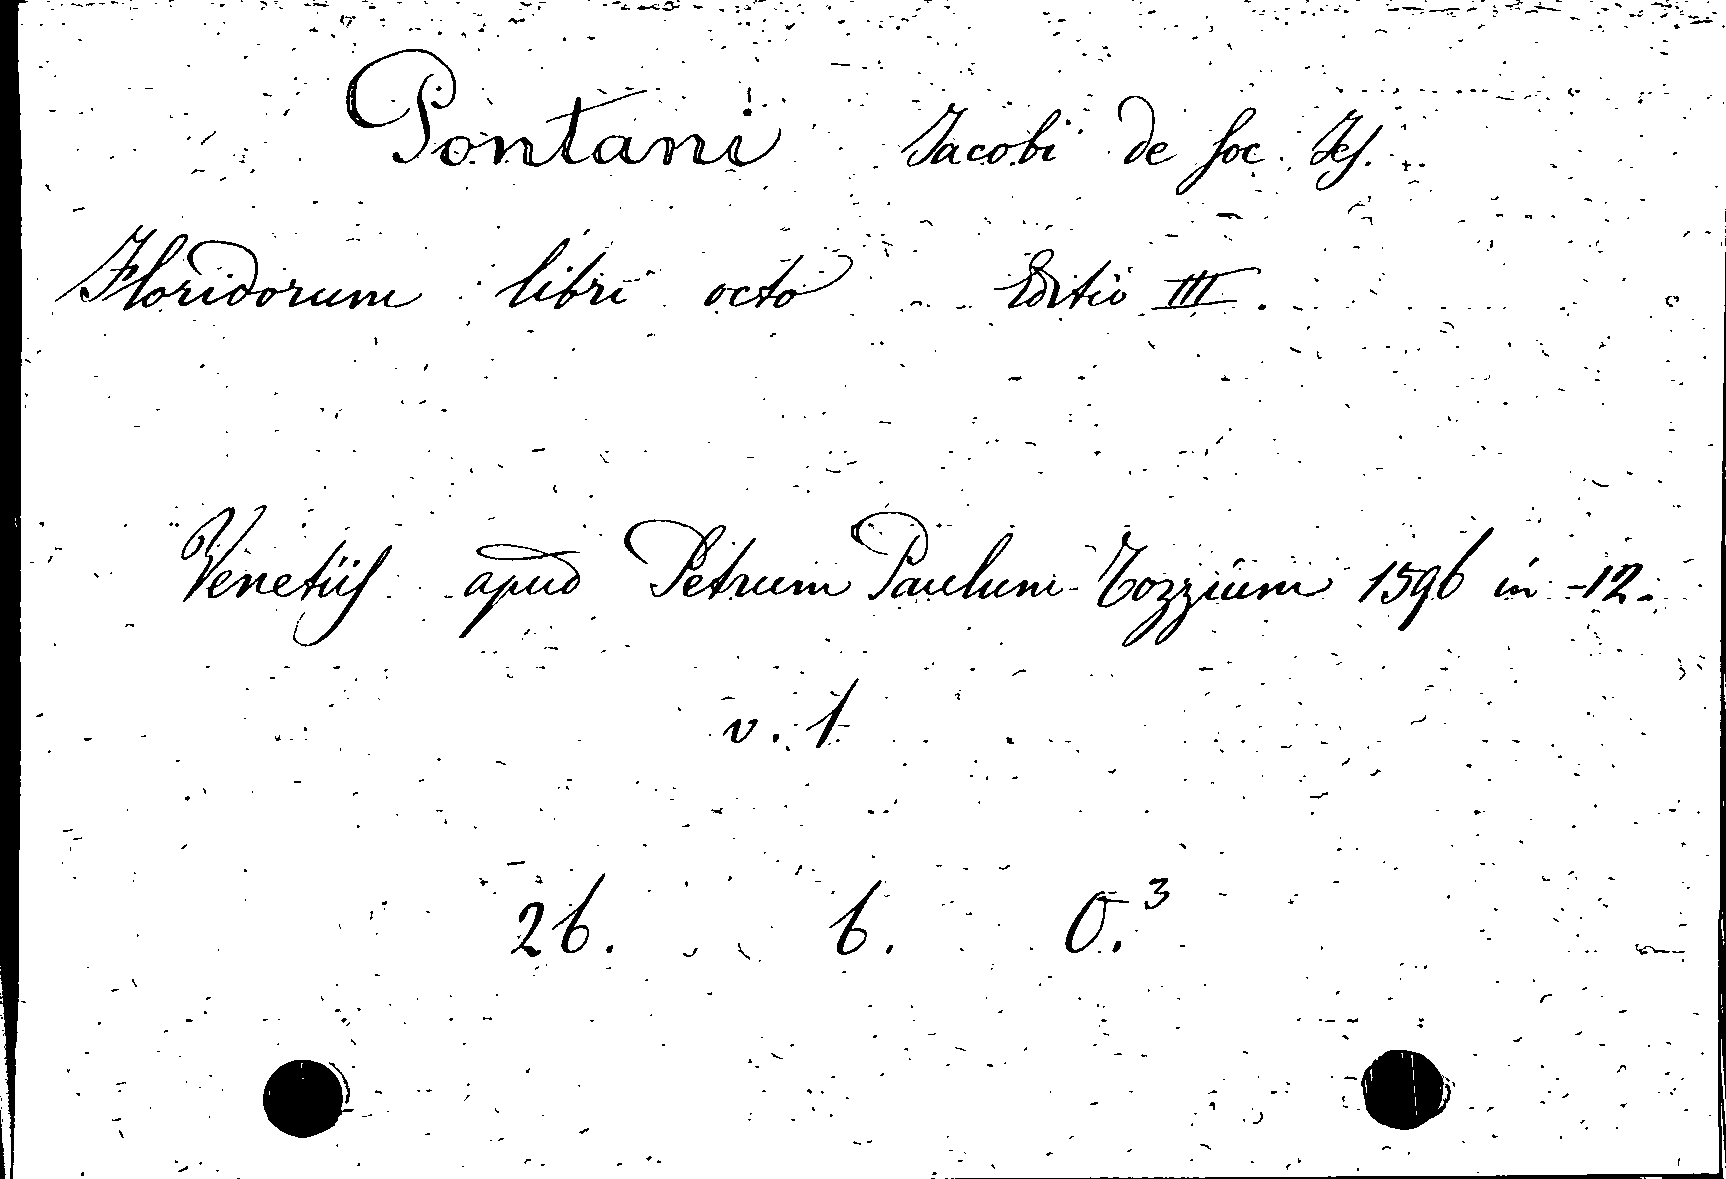 Pontani Jacobi de Soc. Jes.
Floridorum libri octo Editio III.
Venetiis apud Petrum Paulum Tozzium 1596 in -12.
v. 1
26. 6. O.³